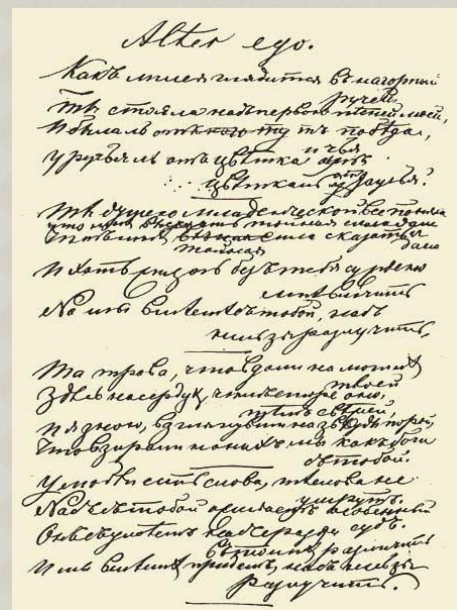 Alter ego.
Какъ лилея глядится въ нагорный
ручей,
Ты стояла надъ первою пѣсней моей,
И была ли побѣда,
и чья
У ручья ль отъ цвѣтка
цвѣтка ль отъ ручья?
Ты душою младенческой все поняла
Что мнѣ высказать тайная сила дала
И хоть жизнь безъ тебя суждено
мнѣ влачить
Но мы вмѣстѣ съ тобой, насъ
нельзя разлучить,
Та трава, что вдали на могилѣ
твоей
Здѣсь на сердцѣ, чѣмъ старе оно,
тѣмъ свѣжей,
И я знаю, взглянувши на звѣзды порой,
Что взирали на нихъ мы какъ боги
съ тобой.
У любви есть слова, тѣ слова не
умрутъ.
Насъ съ тобой ожидаетъ особенный
судъ.
Онъ съумѣетъ насъ сразу
въ толпѣ различить
И мы вмѣстѣ придемъ, насъ нельзя
разлучить.